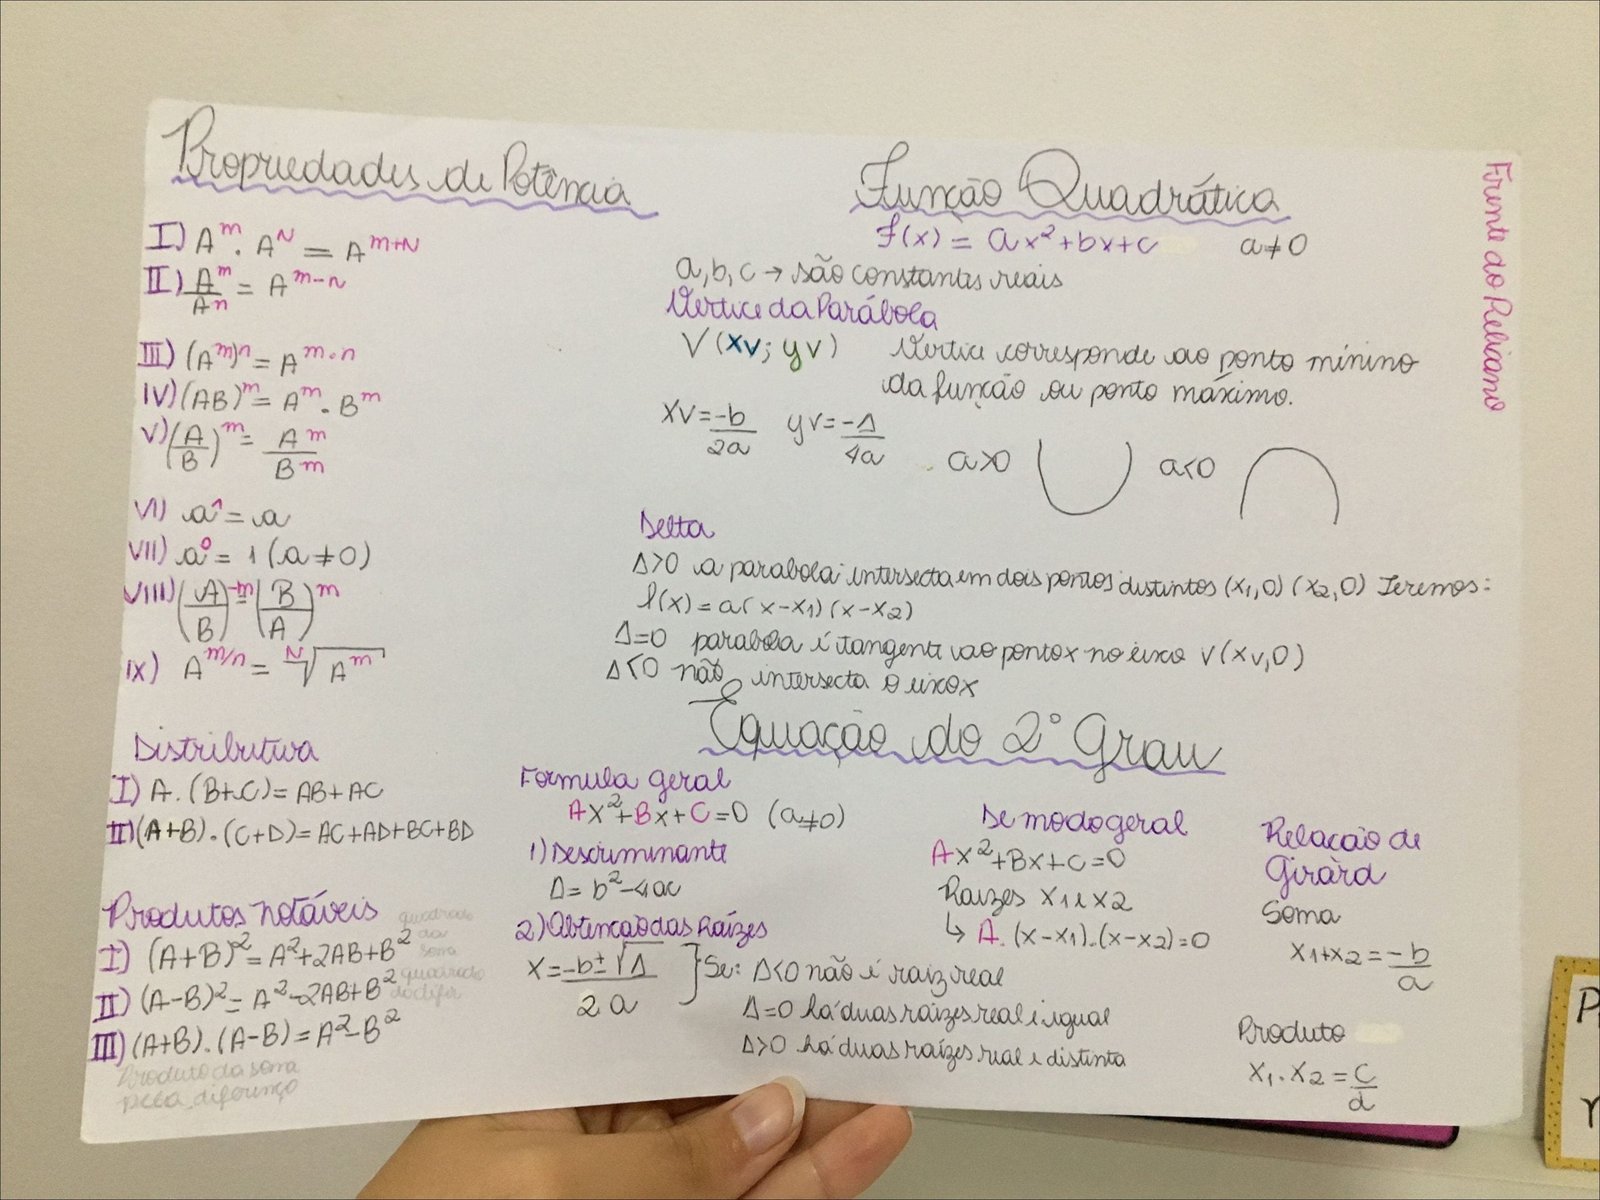 Propriedades de Potência
I) A^m . A^N = A^{m+N}
II) A^m/A^n = A^{m-n}
III) (A^m)^n = A^{m.n}
IV) (AB)^m = A^m . B^m
V) (A/B)^m = A^m/B^m
VI) a^1 = a
VII) a^0 = 1 (a≠0)
VIII) (A/B)^{-m} = (B/A)^m
IX) A^{m/n} = ᴺ√A^m
Distributiva
I) A.(B+C)=AB+AC
II) (A+B).(C+D)=AC+AD+BC+BD
Produtos notáveis
I) (A+B)²=A²+2AB+B² quadrado da soma
II) (A-B)²=A²-2AB+B² quadrado da difer
III) (A+B).(A-B)=A²-B²
Produto da soma
pela diferença
Função Quadrática
f(x)=ax²+bx+c a≠0
a,b,c → são constantes reais
Vertice da Parábola
V(xv; yv) Vertice corresponde ao ponto mínino
da função ou ponto máximo.
xv=-b/2a yv=-Δ/4a a>0 a<0
Delta
Δ>0 a parabola intersecta em dois pontos distintos (x1,0) (x2,0) Teremos:
f(x)=a(x-x1)(x-x2)
Δ=0 parabola é tangente ao ponto x no eixo V(xv,0)
Δ<0 não intersecta o eixo x
Equação do 2° Grau
Formula geral
Ax²+Bx+C=0 (a≠0)
1) Descriminante
Δ=b²-4ac
2) Obtenção das Raízes
x=-b±√Δ/2a } Se: Δ<0 não é raiz real
Δ=0 há duas raízes real e igual
Δ>0 há duas raízes real e distinta
De modo geral
Ax²+Bx+C=0
Raizes x1 e x2
↳ A.(x-x1).(x-x2)=0
Relação de
Girard
Soma
x1+x2=-b/a
Produto
x1.x2=c/a
Frente do Feliciano
P